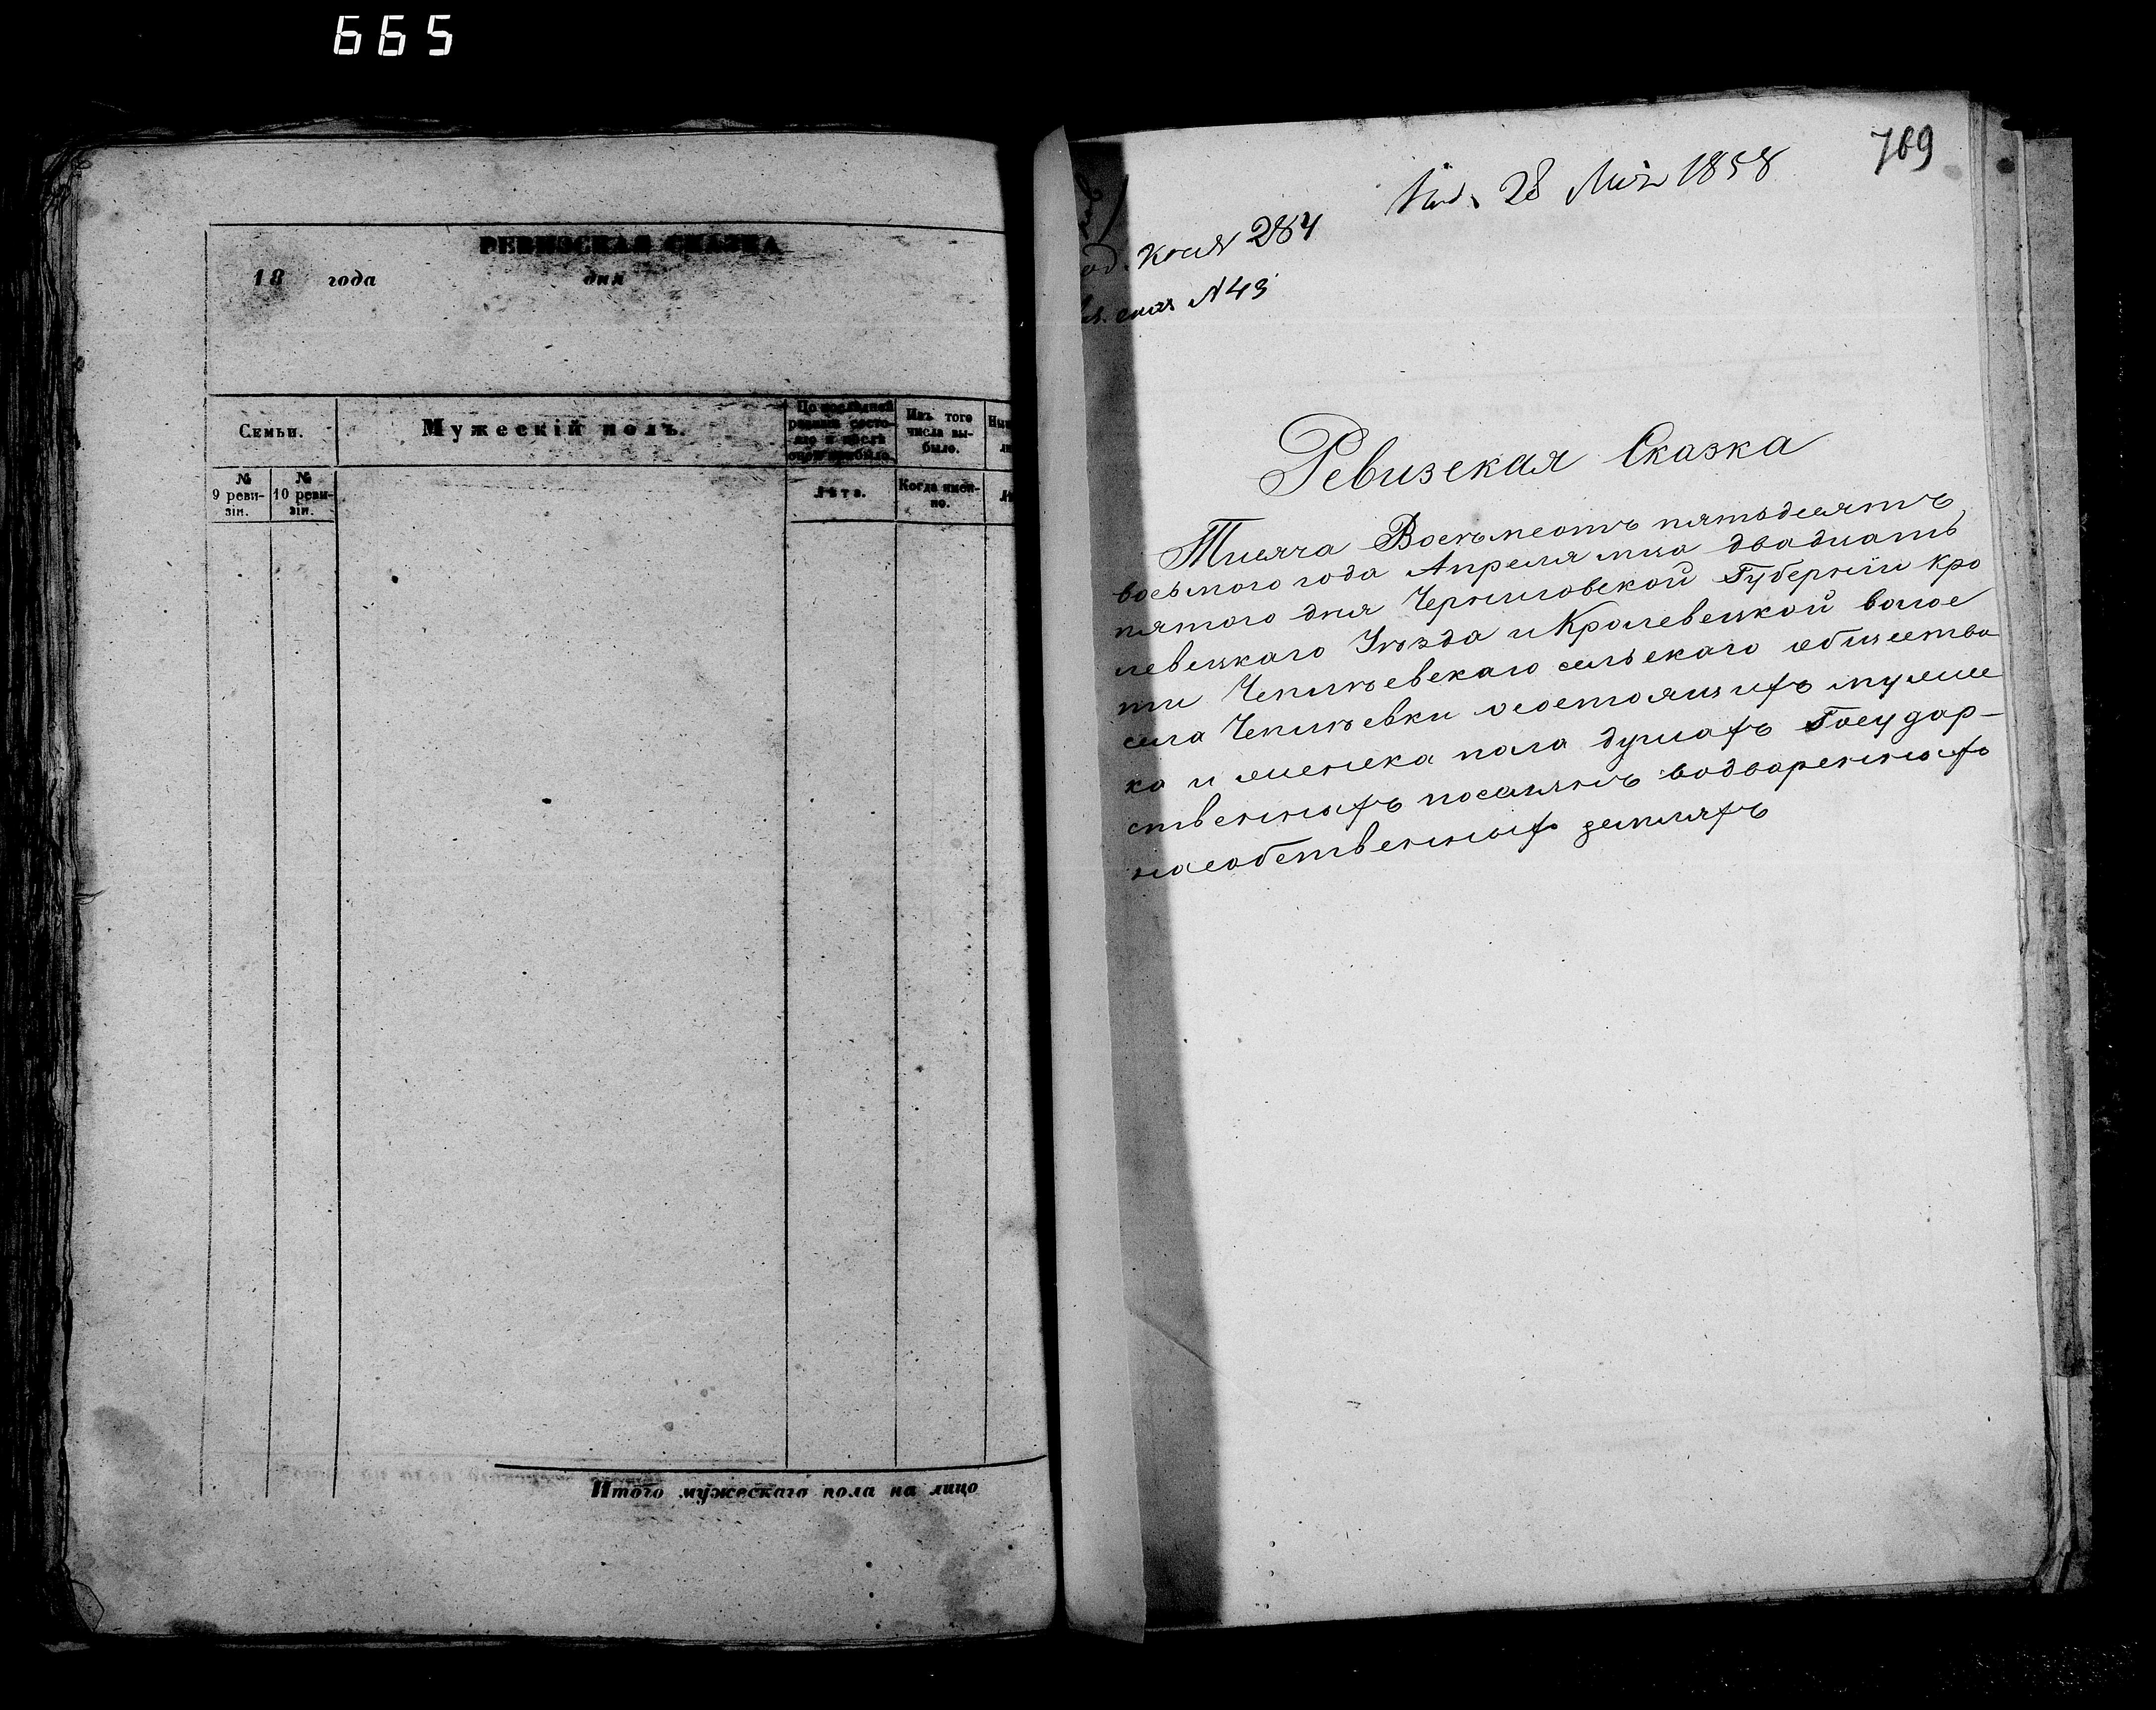 665
РЕВИЗСКАЯ СКАЗКА
18 года дня
Семьи.
Мужескій полъ.
По послѣдней
ревизіи состо-
яло и послѣ
оной прибыло.
Изъ того
числа вы-
было.
№
9 реви-
зіи.
№
10 реви-
зіи.
Лѣта.
Когда имен-
но.
Итого мужескаго пола на лицо
769
28 1858
284
№ 43
Ревизская Сказка
Тисяча Восемьсотъ пятьдесятъ
восьмого года Апреля мца двадцать
пятого дня Черниговской Губерніи Кро
левецкаго Уѣзда и Кролевецкой волос
ти Чепліевскаго сельскаго общества
села Чепліевки о состоящихъ мужес
ка и женска пола душахъ Государ-
ственныхъ поселянъ водворенныхъ
на собственныхъ земляхъ